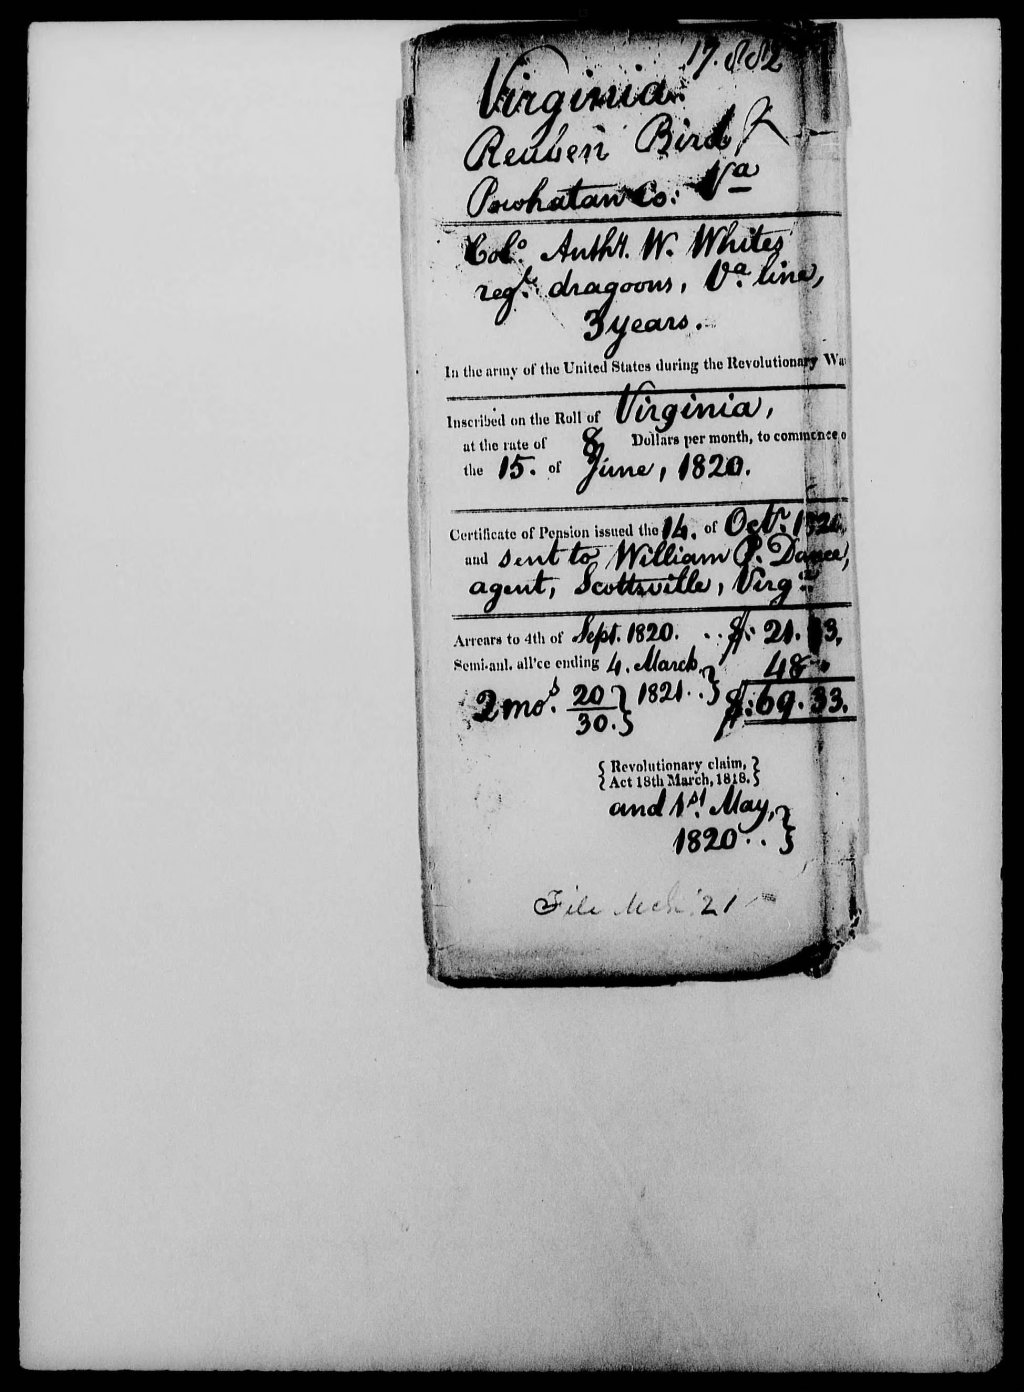 17.882
Virginia.
Reuben Bird
Powhatan Co: Vª
Colº Anthy. W. Whites
regt. dragoons, Vª line,
3 years.
In the army of the United States during the Revolutionary Wa
Inscribed on the Roll of Virginia,
at the rate of 8 Dollars per month, to commence o
the 15. of June, 1820.
Certificate of Pension issued the 14. of Octr. 1820,
and sent to William P. Dance,
agent, Scottsville, Virgª
Arrears to 4th of Sept. 1820. .. $: 21.33.
Semi-anl. all'ce ending 4. March 48 "
2 mos. 20/30. } 1821.. } $: 69.33.
{ Revolutionary claim, }
{ Act 18th March, 1818. }
and 1st. May, }
1820 .. }
File Mch '21